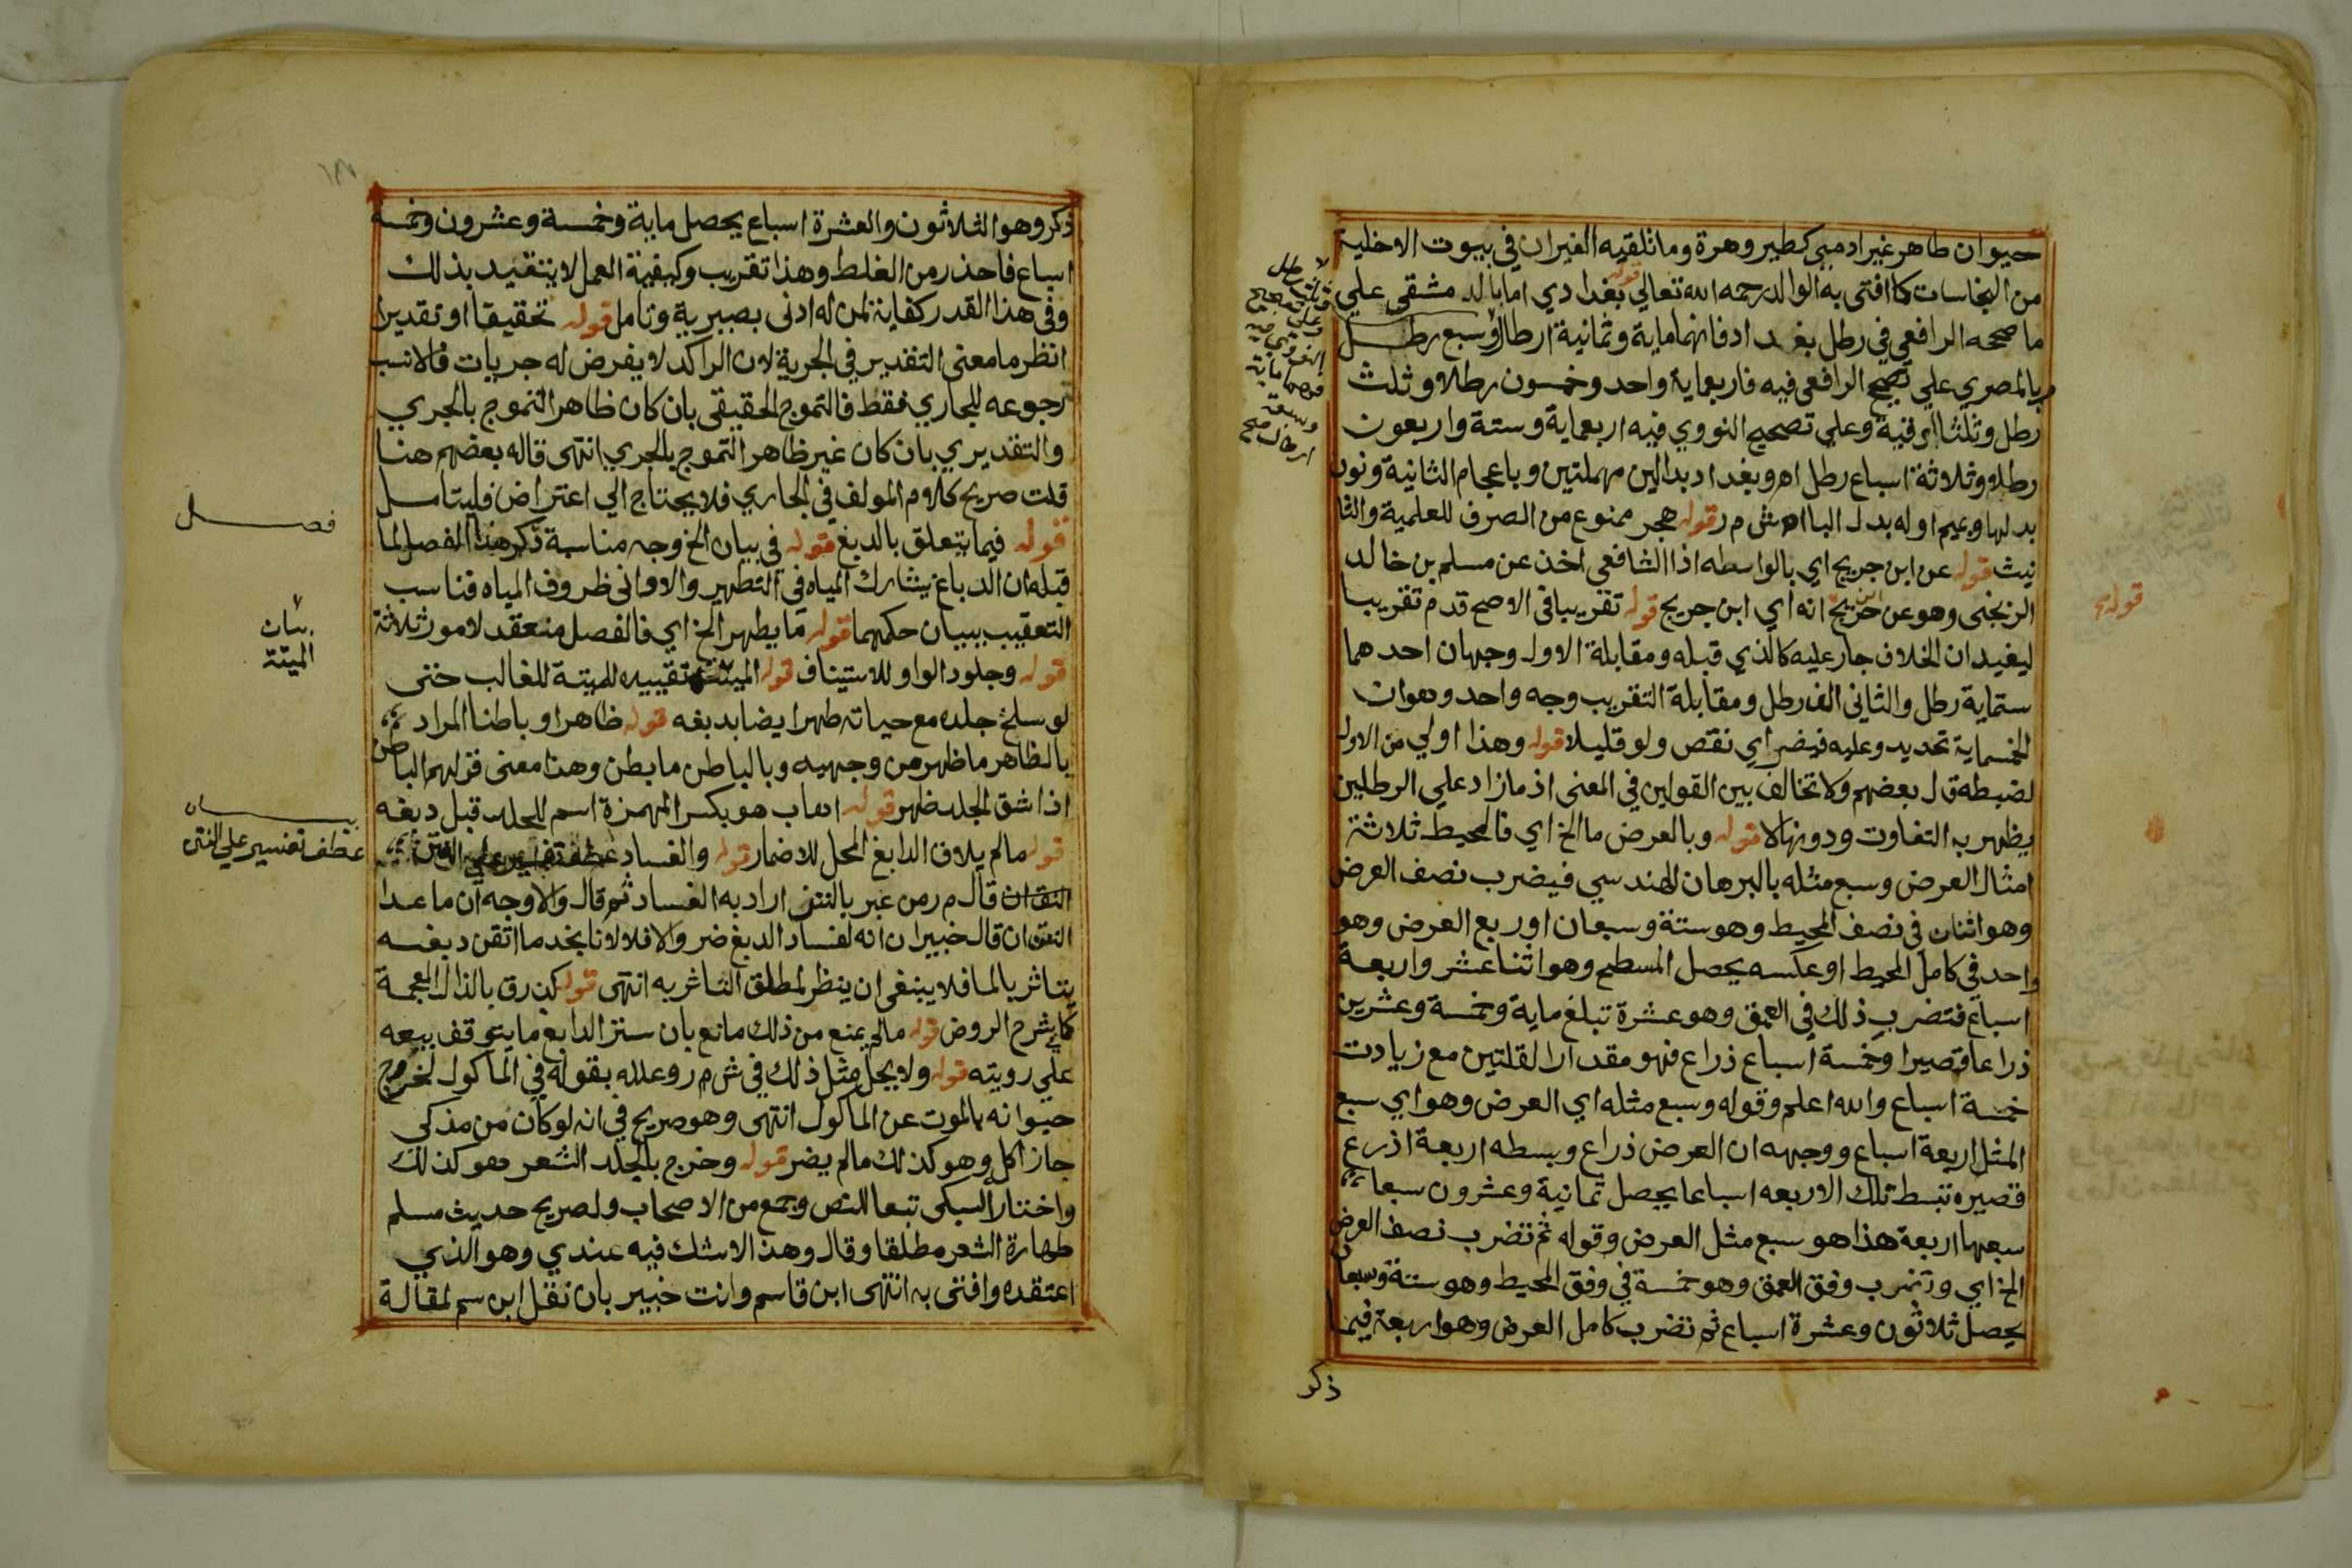 حيوان طاهر غير ادمي كطير وهرة وما تلقيه الفيران في بيوت الاخلية
من النجاسات كما افتى به الوالد رحمه الله تعالي قوله بغدادي اما بالدمشقي علي
ما صححه الرافعي في رطل بغداد فانهما ماية وثمانية ارطال وسبع رطل
وبالمصري علي تصحيح الرافعي فيه فاربعماية واحد وخمسون رطلا وثلث
رطل وثلثا اوقية وعلي تصحيح النووي فيه اربعماية وستة واربعون
رطلا وثلاثة اسباع رطل اهـ وبغداد بدالين مهملتين وباعجام الثانية ونون
بدلها وبميم اوله بدل البا اهـ ش م ر قوله هجر ممنوع من الصرف للعلمية والتا
نيث قوله عن ابن جريج اي بالواسطه اذا الشافعي اخذ عن مسلم بن خالد
الزنجي وهو عن ابن جريج انه اي ابن جريج قوله تقريبا في الاصح قدم تقريبا
ليفيد ان الخلاف جار عليه كالذي قبله ومقابلة الاول وجهان احدهما
ستماية رطل والثاني الف رطل ومقابلة التقريب وجه واحد وهوان
الخمسماية تحديد وعليه فيضر اي نقص ولو قليلا قوله وهذا اولي من الاول
لضبطه قال بعضهم ولا تخالف بين القولين في المعنى اذ ما زاد علي الرطلين
يظهر به التفاوت ودونها لا قوله وبالعرض ما الخ اي فالمحيط ثلاثة
امثال العرض وسبع مثله بالبرهان الهندسي فيضرب نصف العرض
وهو اثنان في نصف المحيط وهو ستة وسبعان او ربع العرض وهو
واحد في كامل المحيط او عكسه يحصل المسطح وهو اثنا عشر واربعة
اسباع فتضرب ذلك في العمق وهو عشرة تبلغ ماية وخمسة وعشرين
ذراعا قصيرا وخمسة اسباع ذراع فهو مقدار القلتين مع زيادت
خمسة اسباع والله اعلم وقوله وسبع مثله اي العرض وهو اي سبع
المثل اربعة اسباع ووجهه ان العرض ذراع وبسطه اربعة اذرع
قصيره تبسط تلك الاربعه اسباعا يحصل ثمانية وعشرون سبعا
سبعها اربعة هذا هو سبع مثل العرض وقوله ثم تضرب نصف العرض
الخ اي وتضرب وفق العمق وهو خمسة في وفق المحيط وهو ستة وسبعان
يحصل ثلاثون وعشرة اسباع ثم تضرب كامل العرض وهو اربعة فيما
ذكر
قوله
ذكر وهو الثلاثون والعشرة اسباع يحصل ماية وخمسة وعشرون وخمسة
اسباع فاحذر من الغلط وهذا تقريب وكيفية العمل لا يتقيد بذلك
وفي هذا القدر كفاية لمن له ادنى بصيرية وتامل قوله تحقيقا او تقديرا
انظر ما معنى التقدير في الجرية لان الراكد لا يفرض له جريات فالانسب
رجوعه للجاري فقط فالتموج الحقيقي بان كان ظاهر التموج بالجري
والتقديري بان كان غير ظاهر التموج بالجري انتهى قاله بعضهم هنا
قلت صريح كلام المولف في الجاري فلا يحتاج الي اعتراض فليتامل
قوله فيما يتعلق بالدبغ قوله في بيان الخ وجه مناسبة ذكر هذا الفصل لما
قبله ان الدباغ يشارك المياه في التطهير والاواني ظروف المياه فناسب
التعقيب ببيان حكمهما قوله ما يطهر الخ اي فالفصل منعقد لامور ثلاثة
قوله وجلود الواو للاستيناف قوله الميتة تقييده للميتة للغالب حتى
لو سلخ جلده مع حياته طهر ايضا بدبغه قوله ظاهرا وباطنا المراد
بالظاهر ما ظهر من وجهيه وبالباطن ما بطن وهذا معنى قولهم الباطن
اذا شق الجلد ظهر قوله اهاب هو بكسر الهمزة اسم للجلد قبل دبغه
قوله مالم يلاق الدابغ المحل للاضمار قوله والفساد عطف تفسير علي النتن
النقان قال م ر من عبر بالنتن اراد به الفساد ثم قال والاوجه ان ماعدا
النتن ان قال خبيران انه لفساد الدبغ ضر والا فلا لانا نجد ما اتقن دبغه
يتاثر بالما فلا ينبغي ان ينظر لمطلق التاثر به انتهى قوله كذرق بالذال المعجمة
كما في شرح الروض قوله مالم يمنع من ذلك مانع بان ستر الدابغ ما يتوقف بيعه
علي رويته قوله ولا يحل مثل ذلك في ش م ر وعلله بقوله في الماكول لخروج
حيوانه بالموت عن الماكول انتهى وهو صريح في انه لو كان من مذكى
جاز اكله وهو كذلك مالم يضر قوله وخرج بالجلد الشعر فهو كذلك
واختار السبكي تبعا للنص وجمع من الاصحاب ولصريح حديث مسلم
طهارة الشعر مطلقا وقال وهذا لا شك فيه عندي وهو الذي
اعتقده وافتى به انتهى ابن قاسم وانت خبير بان نقل ابن سم لمقالة
فصل
بيان
الميتة
بيان
عطف تفسير علي النتن